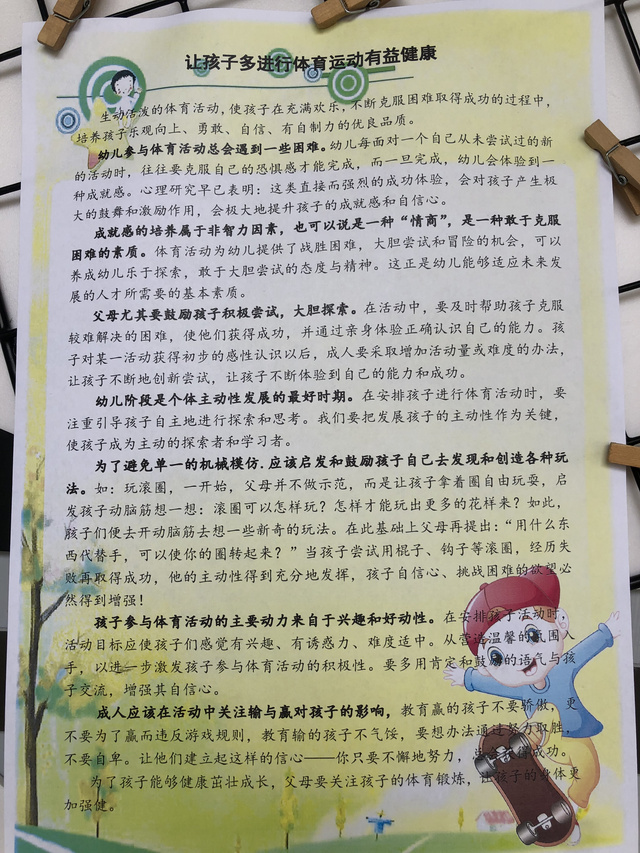 让孩子多进行体育运动有益健康
生动活泼的体育活动,使孩子在充满欢乐,不断克服困难取得成功的过程中,
培养孩子乐观向上、勇敢、自信、有自制力的优良品质。
幼儿参与体育活动总会遇到一些困难。幼儿每面对一个自己从未尝试过的新
的活动时,往往要克服自己的恐惧感才能完成,而一旦完成,幼儿会体验到一
种成就感。心理研究早已表明:这类直接而强烈的成功体验,会对孩子产生极
大的鼓舞和激励作用,会极大地提升孩子的成就感和自信心。
成就感的培养属于非智力因素,也可以说是一种“情商”,是一种敢于克服
困难的素质。体育活动为幼儿提供了战胜困难,大胆尝试和冒险的机会,可以
养成幼儿乐于探索,敢于大胆尝试的态度与精神。这正是幼儿能够适应未来发
展的人才所需要的基本素质。
父母尤其要鼓励孩子积极尝试,大胆探索。在活动中,要及时帮助孩子克服
较难解决的困难,使他们获得成功,并通过亲身体验正确认识自己的能力。孩
子对某一活动获得初步的感性认识以后,成人要采取增加活动量或难度的办法,
让孩子不断地创新尝试,让孩子不断体验到自己的能力和成功。
幼儿阶段是个体主动性发展的最好时期。在安排孩子进行体育活动时,要
注重引导孩子自主地进行探索和思考。我们要把发展孩子的主动性作为关键,
使孩子成为主动的探索者和学习者。
为了避免单一的机械模仿.应该启发和鼓励孩子自己去发现和创造各种玩
法。如:玩滚圈,一开始,父母并不做示范,而是让孩子拿着圈自由玩耍,启
发孩子动脑筋想一想:滚圈可以怎样玩?怎样才能玩出更多的花样来?如此,
孩子们便去开动脑筋去想一些新奇的玩法。在此基础上父母再提出:“用什么东
西代替手,可以使你的圈转起来?”当孩子尝试用棍子、钩子等滚圈,经历失
败再取得成功,他的主动性得到充分地发挥,孩子自信心、挑战困难的欲望必
然得到增强!
孩子参与体育活动的主要动力来自于兴趣和好动性。在安排孩子活动时,
活动目标应使孩子们感觉有兴趣、有诱惑力、难度适中。从营造温馨的氛围入
手,以进一步激发孩子参与体育活动的积极性。要多用肯定和鼓励的语气与孩
子交流,增强其自信心。
成人应该在活动中关注输与赢对孩子的影响,教育赢的孩子不要骄傲,更
不要为了赢而违反游戏规则,教育输的孩子不气馁,要想办法通过努力取胜,
不要自卑。让他们建立起这样的信心——你只要不懈地努力,就会获得成功。
为了孩子能够健康茁壮成长,父母要关注孩子的体育锻炼,让孩子的身体更
加强健。